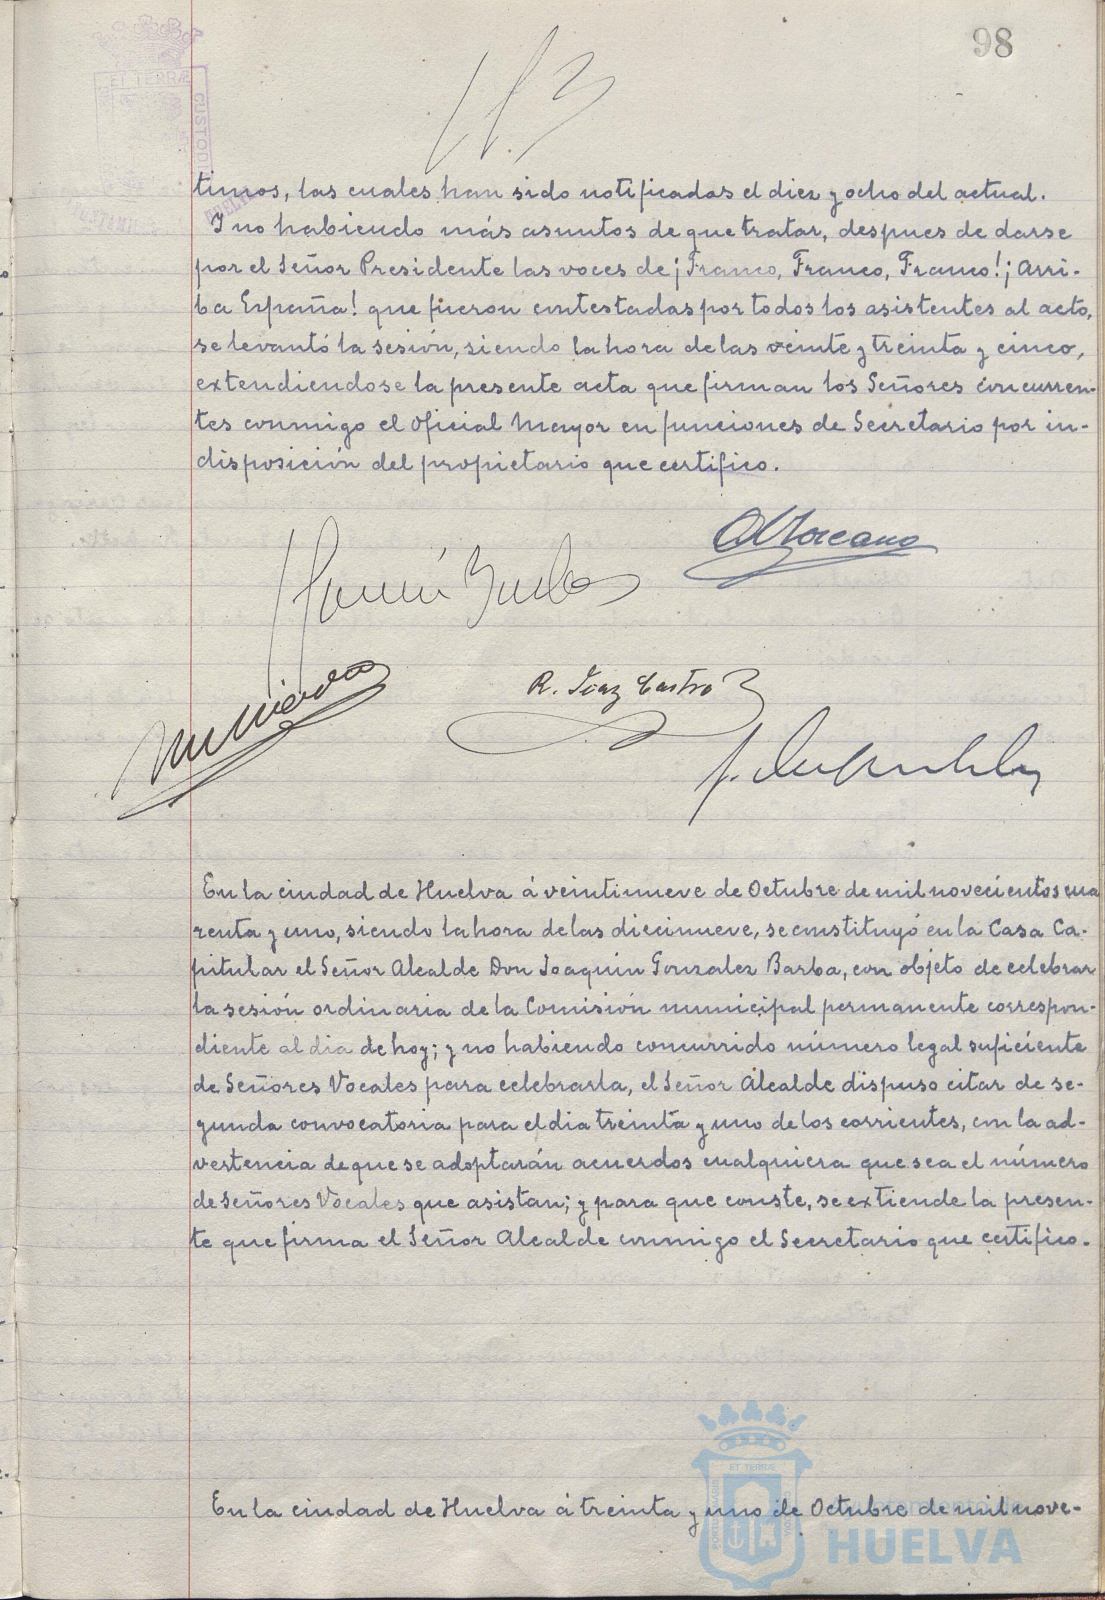 98
timos, las cuales han sido notificadas el diez y ocho del actual.
Y no habiendo más asuntos de que tratar, despues de darse
por el Señor Presidente las voces de ¡Franco, Franco, Franco! ¡Arri-
ba España! que fueron contestadas por todos los asistentes al acto,
se levantó la sesión, siendo la hora de las veinte y treinta y cinco,
extendiendose la presente acta que firman los Señores concurren-
tes conmigo el Oficial Mayor en funciones de Secretario por in-
disposición del propietario que certifico.
R. Diaz Castro
En la ciudad de Huelva á veintinueve de Octubre de mil novecientos cua
renta y uno, siendo la hora de las diecinueve, se constituyó en la Casa Ca-
pitular el Señor Alcalde Don Joaquín Gonzalez Barba, con objeto de celebrar
la sesión ordinaria de la Comisión municipal permanente correspon-
diente al dia de hoy; y no habiendo concurrido número legal suficiente
de Señores Vocales para celebrarla, el Señor Alcalde dispuso citar de se-
gunda convocatoria para el dia treinta y uno de los corrientes, con la ad-
vertencia de que se adoptarán acuerdos cualquiera que sea el número
de Señores Vocales que asistan; y para que conste, se extiende la presen-
te que firma el Señor Alcalde conmigo el Secretario que certifico.
En la ciudad de Huelva á treinta y uno de Octubre de mil nove-
HUELVA